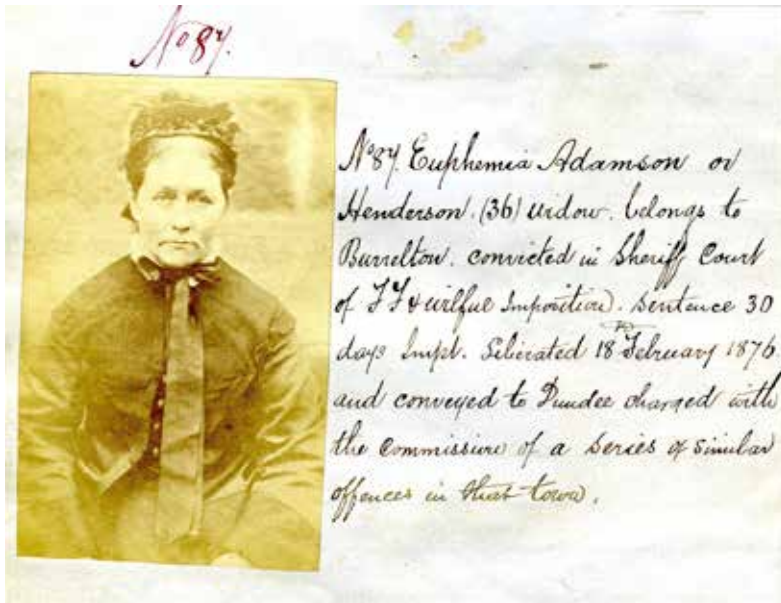 No 87.
No 87. Euphemia Adamson or
Henderson. (36) widow. belongs to
Burrelton. convicted in Sheriff Court
of F F & wilful Imposition. Sentence 30
days Impt. Liberated 18 February 1876
and conveyed to Dundee charged with
the commission of a series of similar
offences in that town.